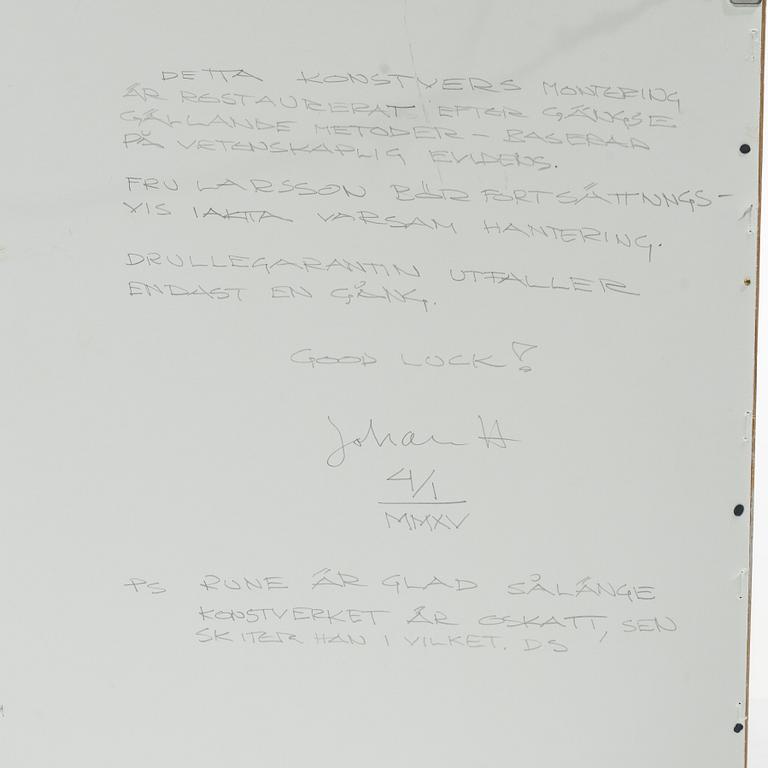 DETTA KONSTVERS MONTERING
ÄR RESTAURERAT EFTER GÄNGSE
GÄLLANDE METODER - BASERAD
PÅ VETENSKAPLIG EVIDENS.
FRU LARSSON BÖR FORTSÄTTNINGS-
VIS IAKTA VARSAM HANTERING.
DRULLEGARANTIN UTFALLER
ENDAST EN GÅNG.
GOOD LUCK!
Johan H
4/1
MMXV
PS RUNE ÄR GLAD SÅLÄNGE
KONSTVERKET ÄR OSKATT, SEN
SKITER HAN I VILKET. DS